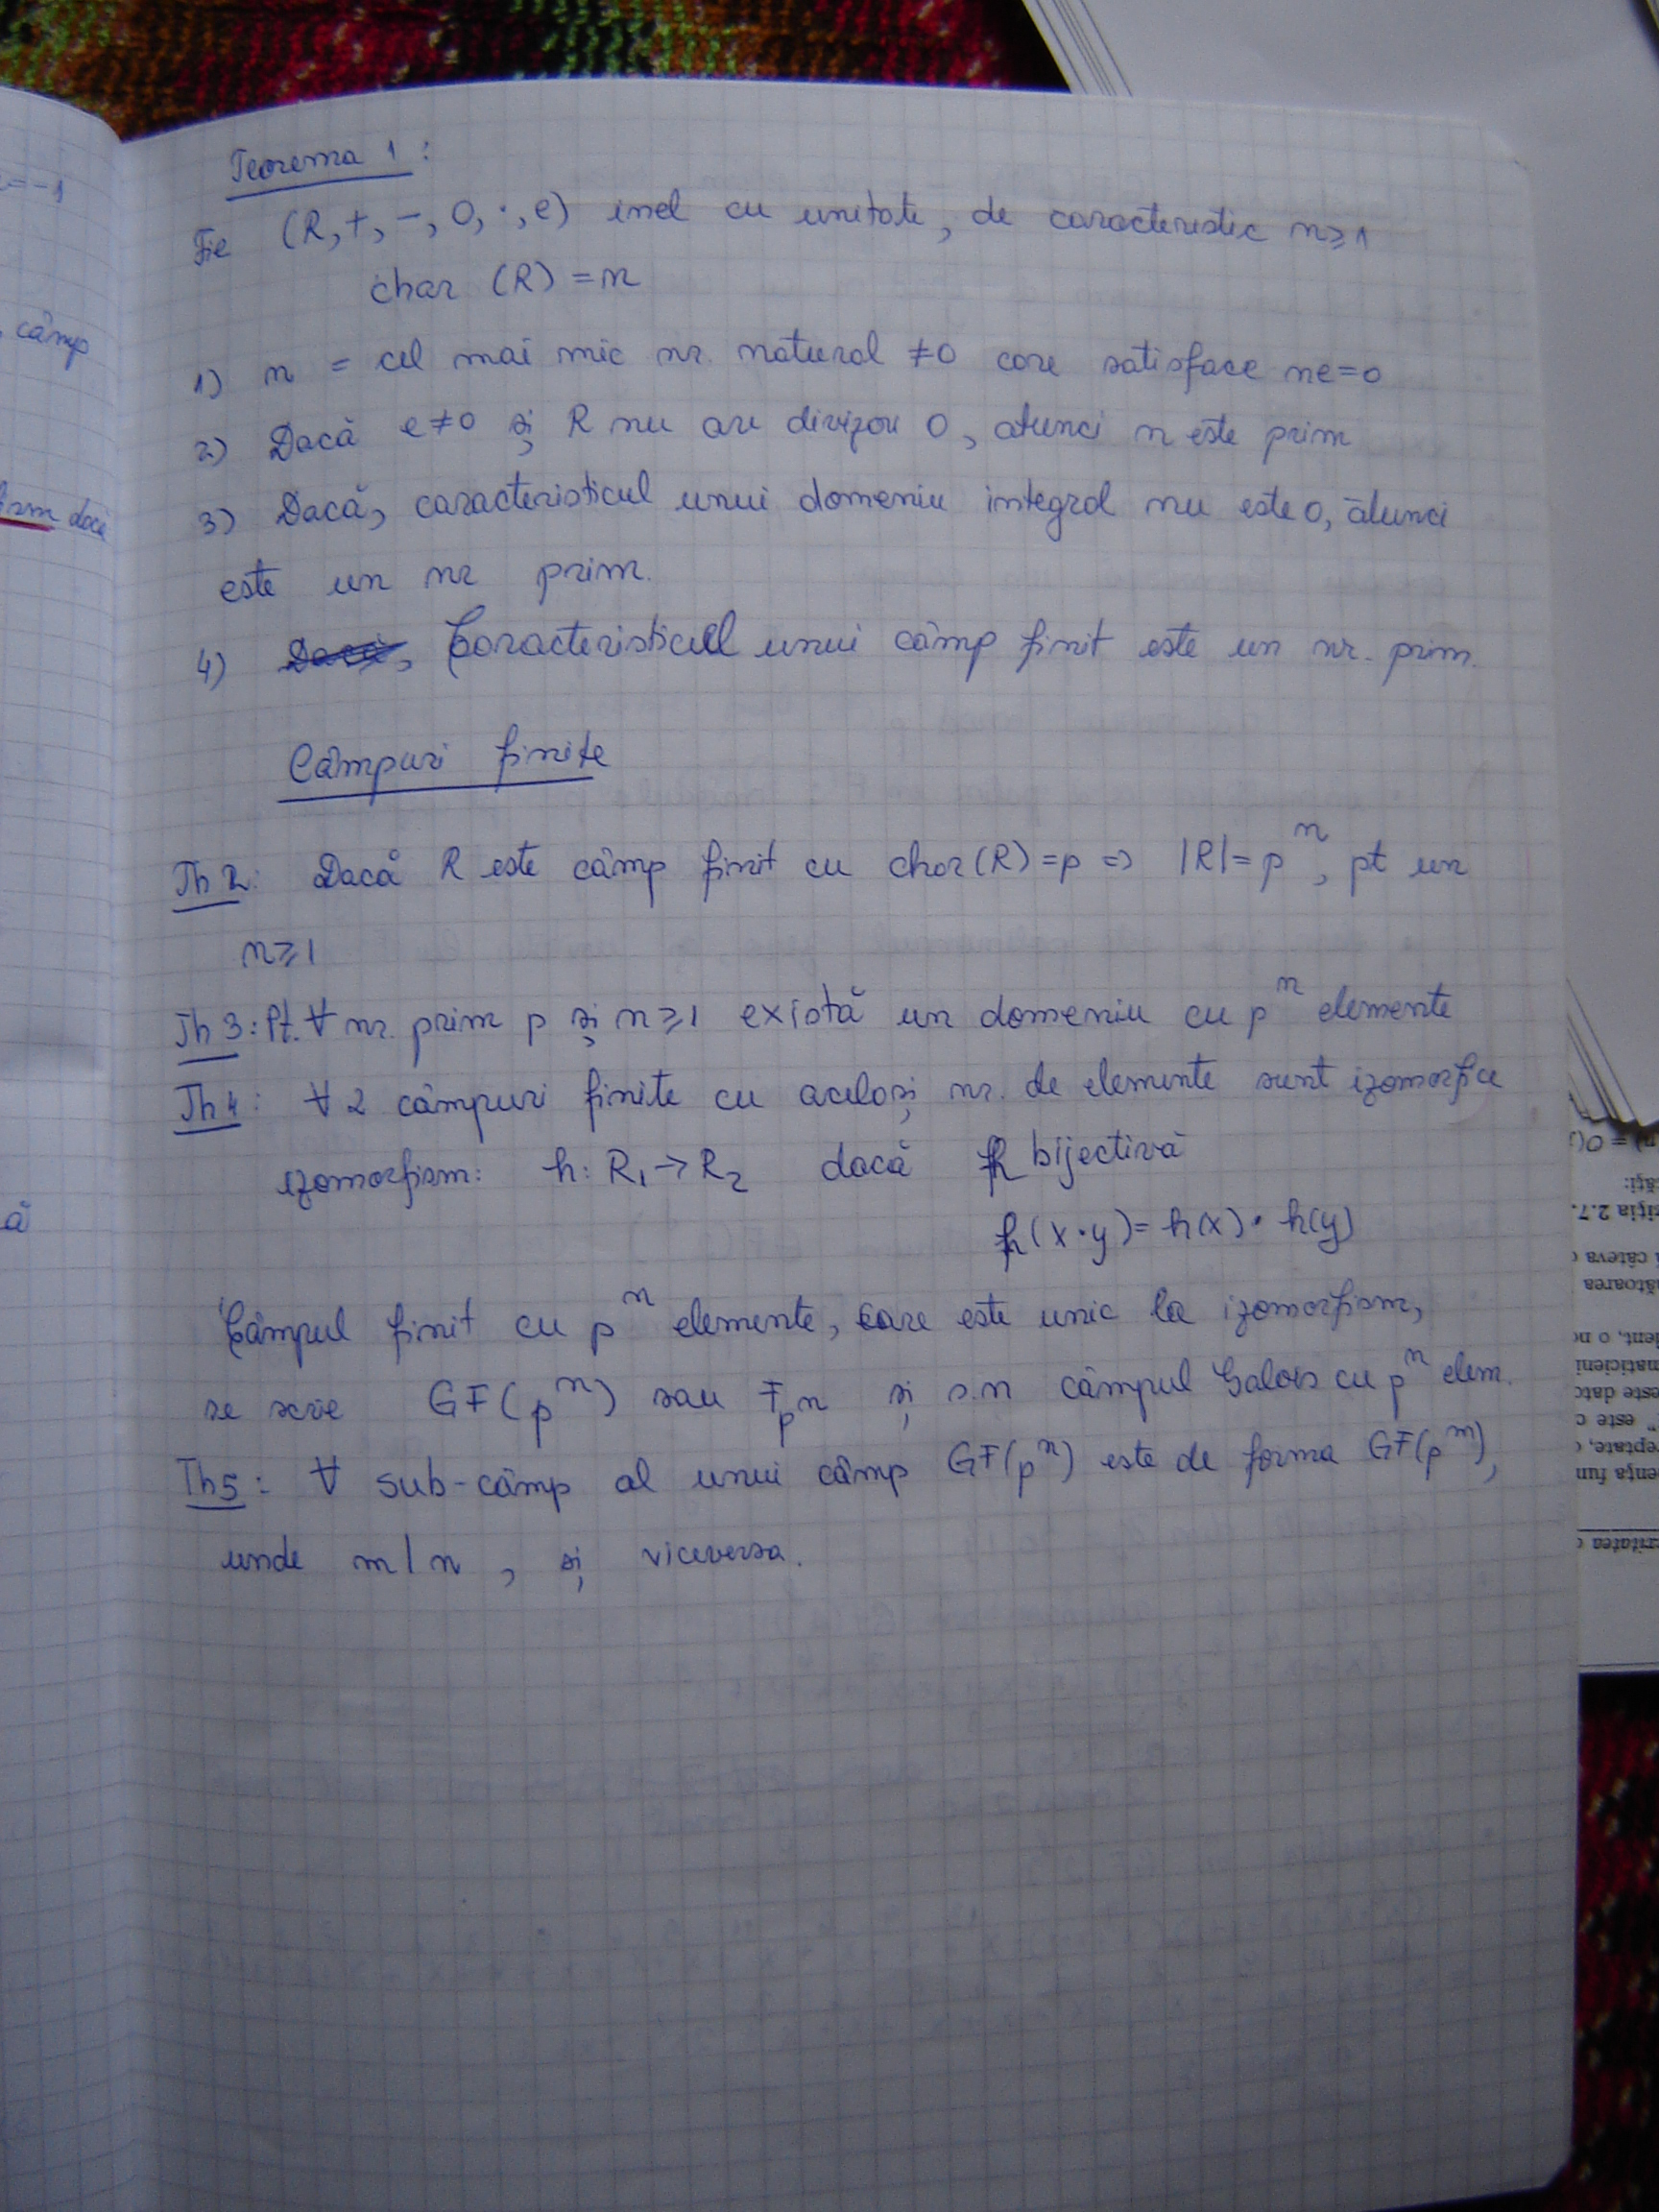 Teorema 1 :
Fie (R, +, -, 0, ·, e) inel cu unitate, de caracteristic n ≥ 1
char (R) = n
1) n = cel mai mic nr. natural ≠ 0 care satisface ne = 0
2) Dacă e ≠ 0 și R nu are divizori 0, atunci n este prim
3) Dacă, caracteristicul unui domeniu integral nu este 0, atunci
este un nr prim.
4) Caracteristicul unui câmp finit este un nr. prim.
Câmpuri finite
Th 2: Dacă R este câmp finit cu char(R) = p ⇒ |R| = p^n, pt un
n ≥ 1
Th 3: Pt. ∀ nr. prim p și n ≥ 1 există un domeniu cu p^n elemente
Th 4: ∀ 2 câmpuri finite cu același nr. de elemente sunt izomorfice
izomorfism: h: R₁ → R₂ dacă h bijectivă
h(x·y) = h(x) · h(y)
Câmpul finit cu p^n elemente, care este unic la izomorfism,
se scrie GF(p^n) sau F_p^n și s.n câmpul Galois cu p^n elem.
Th5: ∀ sub-câmp al unui câmp GF(p^n) este de forma GF(p^m),
unde m|n, și viceversa.
= -1
câmp
dacă
ă